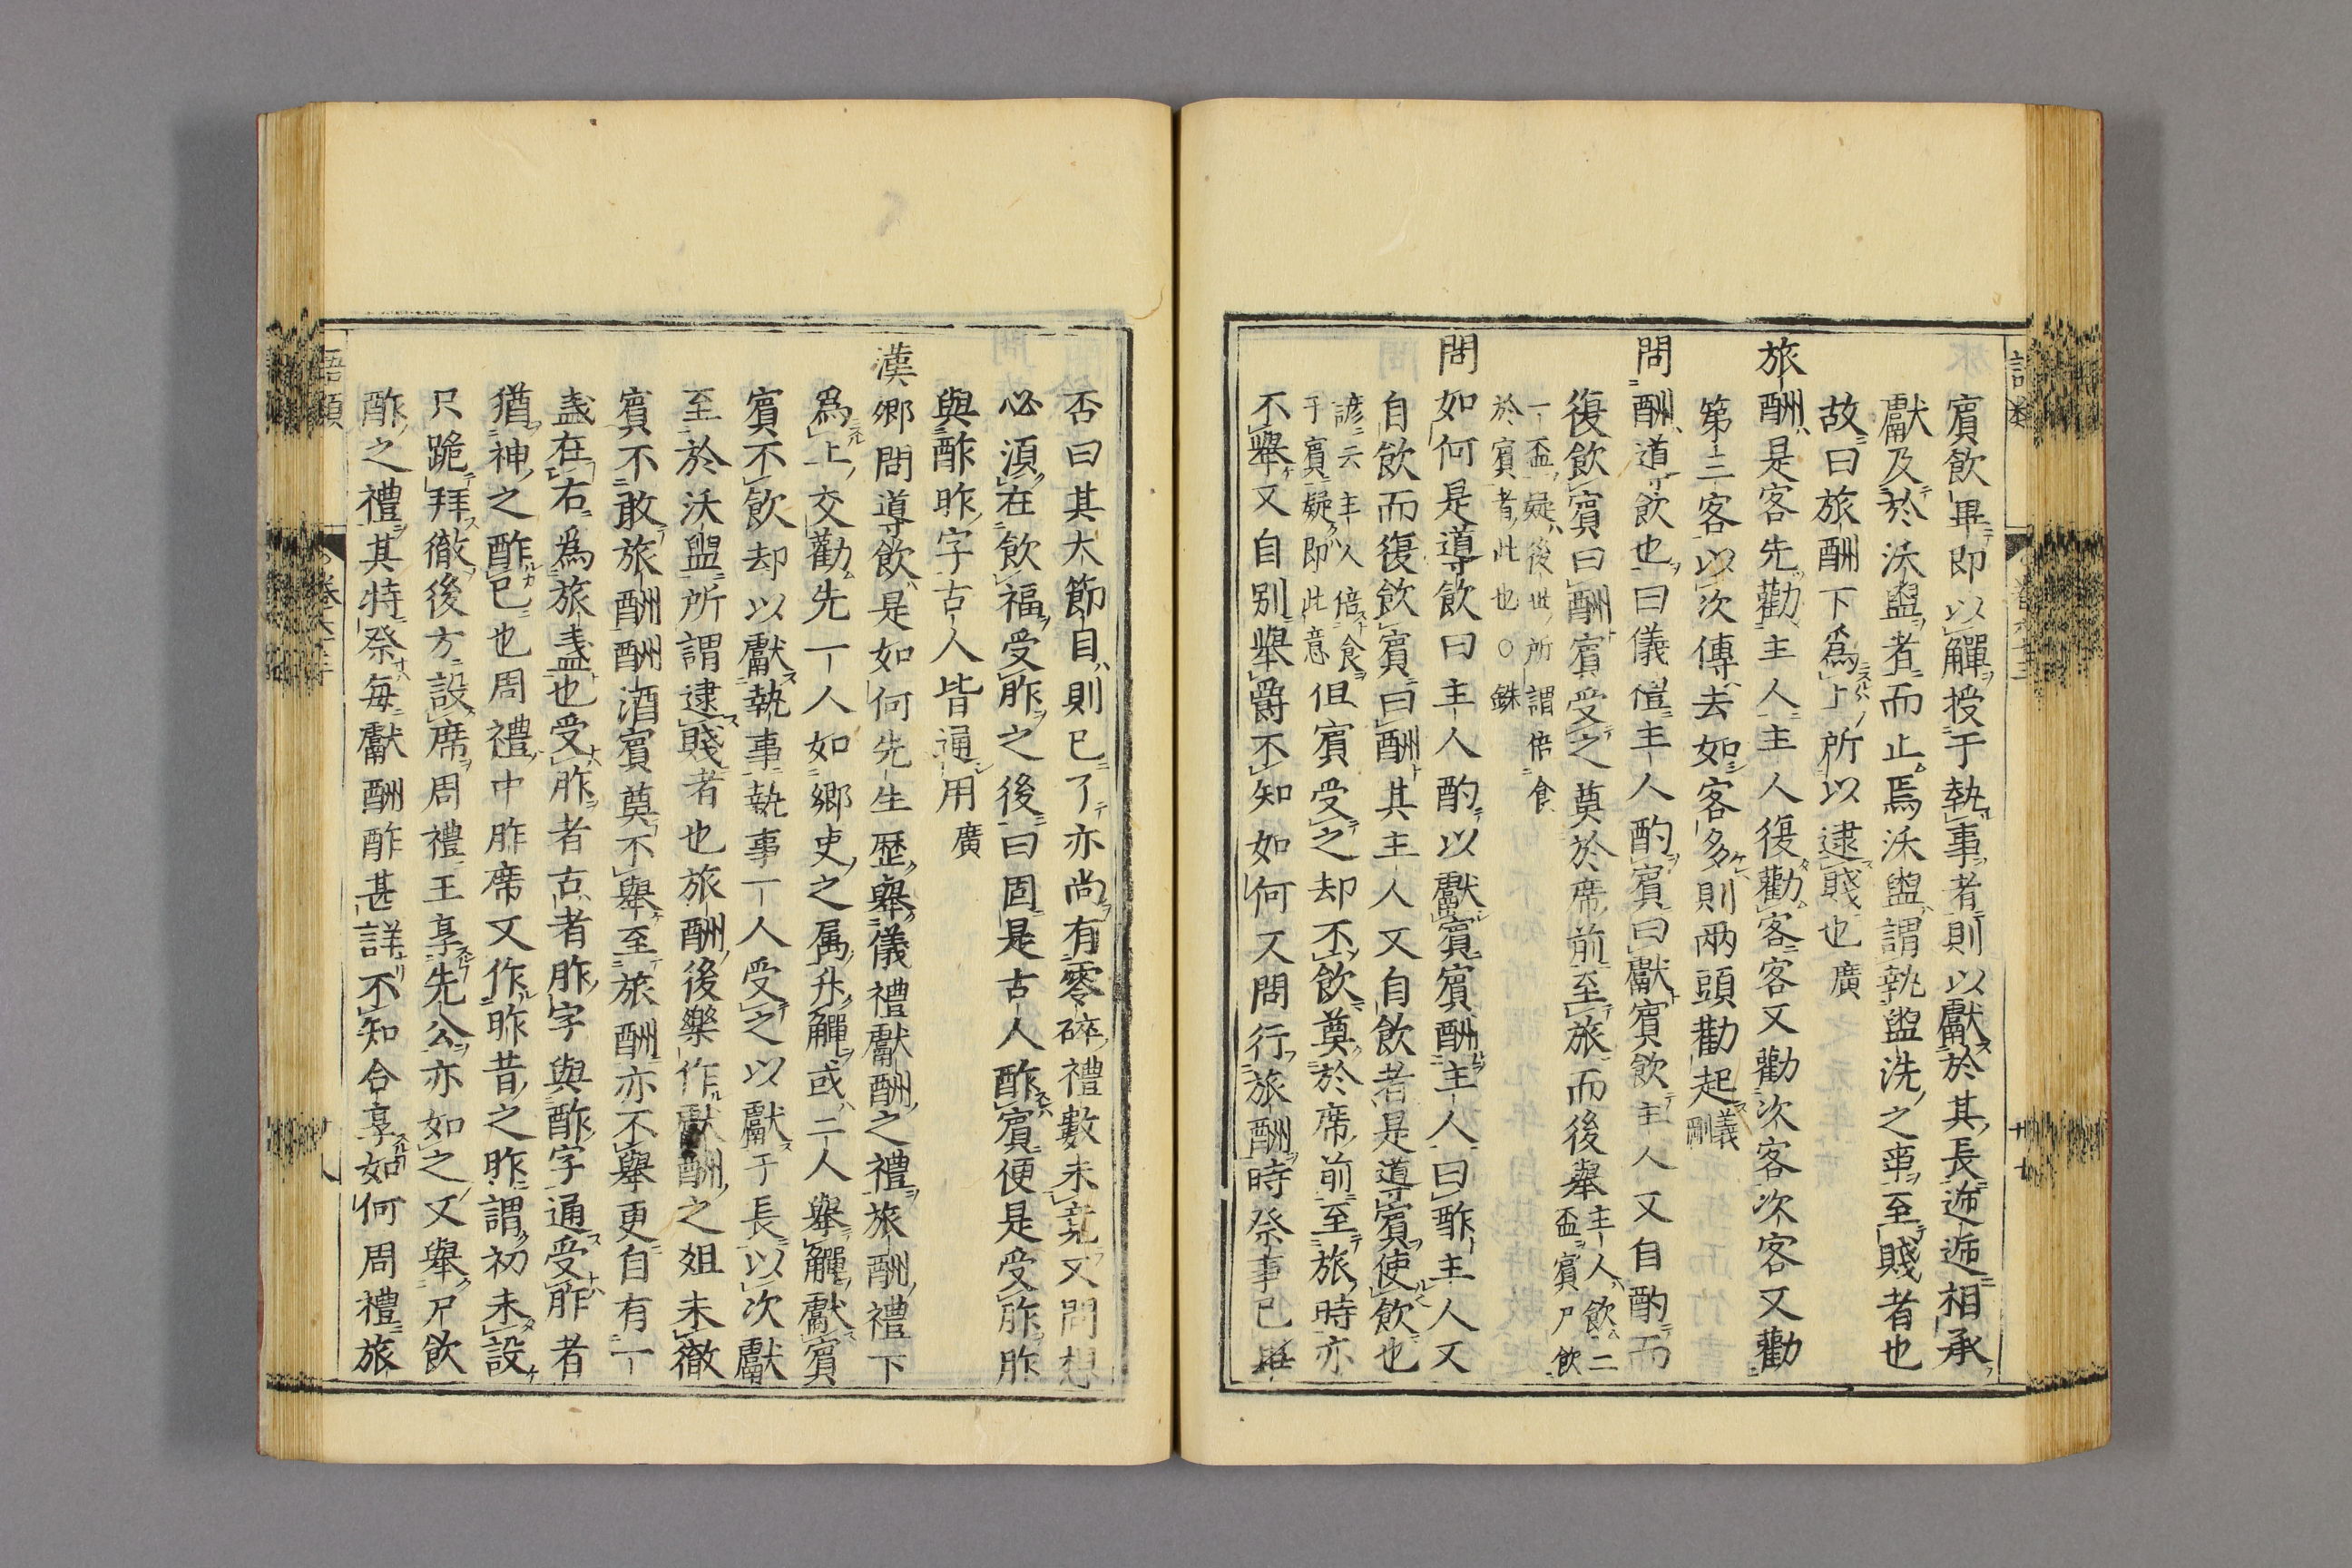 賓飲畢即以觶授于執事者則以獻於其長遞遞相承
獻及於沃盥者而止焉沃盥謂執盥洗之事至賤者也
故曰旅酬下爲上所以逮賤也廣
旅酬是客先勸主人主人復勸客客又勸次客次客又勸
第二客以次傳去如客多則兩頭勸起義剛
問酬道飲也曰儀禮主人酌賓曰獻賓飲主人又自酌而
復飲賓曰酬賓受之奠於席前至旅而後舉主人飲二
盃賓只飲
一盃疑後世所謂倍食
於賓者此也○銖
問如何是導飲曰主人酌以獻賓賓酬主人曰酢主人又
自飲而復飲賓曰酬其主人又自飲者是導賓使飲也
諺云主人倍食
于賓疑即此意但賓受之却不飲奠於席前至旅時亦
不舉又自别舉爵不知如何又問行旅酬時祭事已畢
否曰其大節目則已了亦尚有零碎禮數未竟又問想
必須在飲福受胙之後曰固是古人酢賓便是受胙胙
與酢昨字古人皆通用廣
漢卿問導飲是如何先生歷舉儀禮獻酬之禮旅酬禮下
爲上交勸先一人如鄉吏之属升觶或二人舉觶獻賓
賓不飲却以獻執事執事一人受之以獻于長以次獻
至於沃盥所謂逮賤者也旅酬後樂作獻酬之俎未徹
賓不敢旅酬酬酒賓奠不舉至旅酬亦不舉更自有一
盞在右爲旅盞也受胙者古者胙字與酢字通受胙者
猶神之酢已也周禮中胙席又作昨昔之昨謂初未設
只跪拜徹後方設席周禮王享先公亦如之又舉尸飲
酢之禮其特祭每獻酬酢甚詳不知合享如何周禮旅